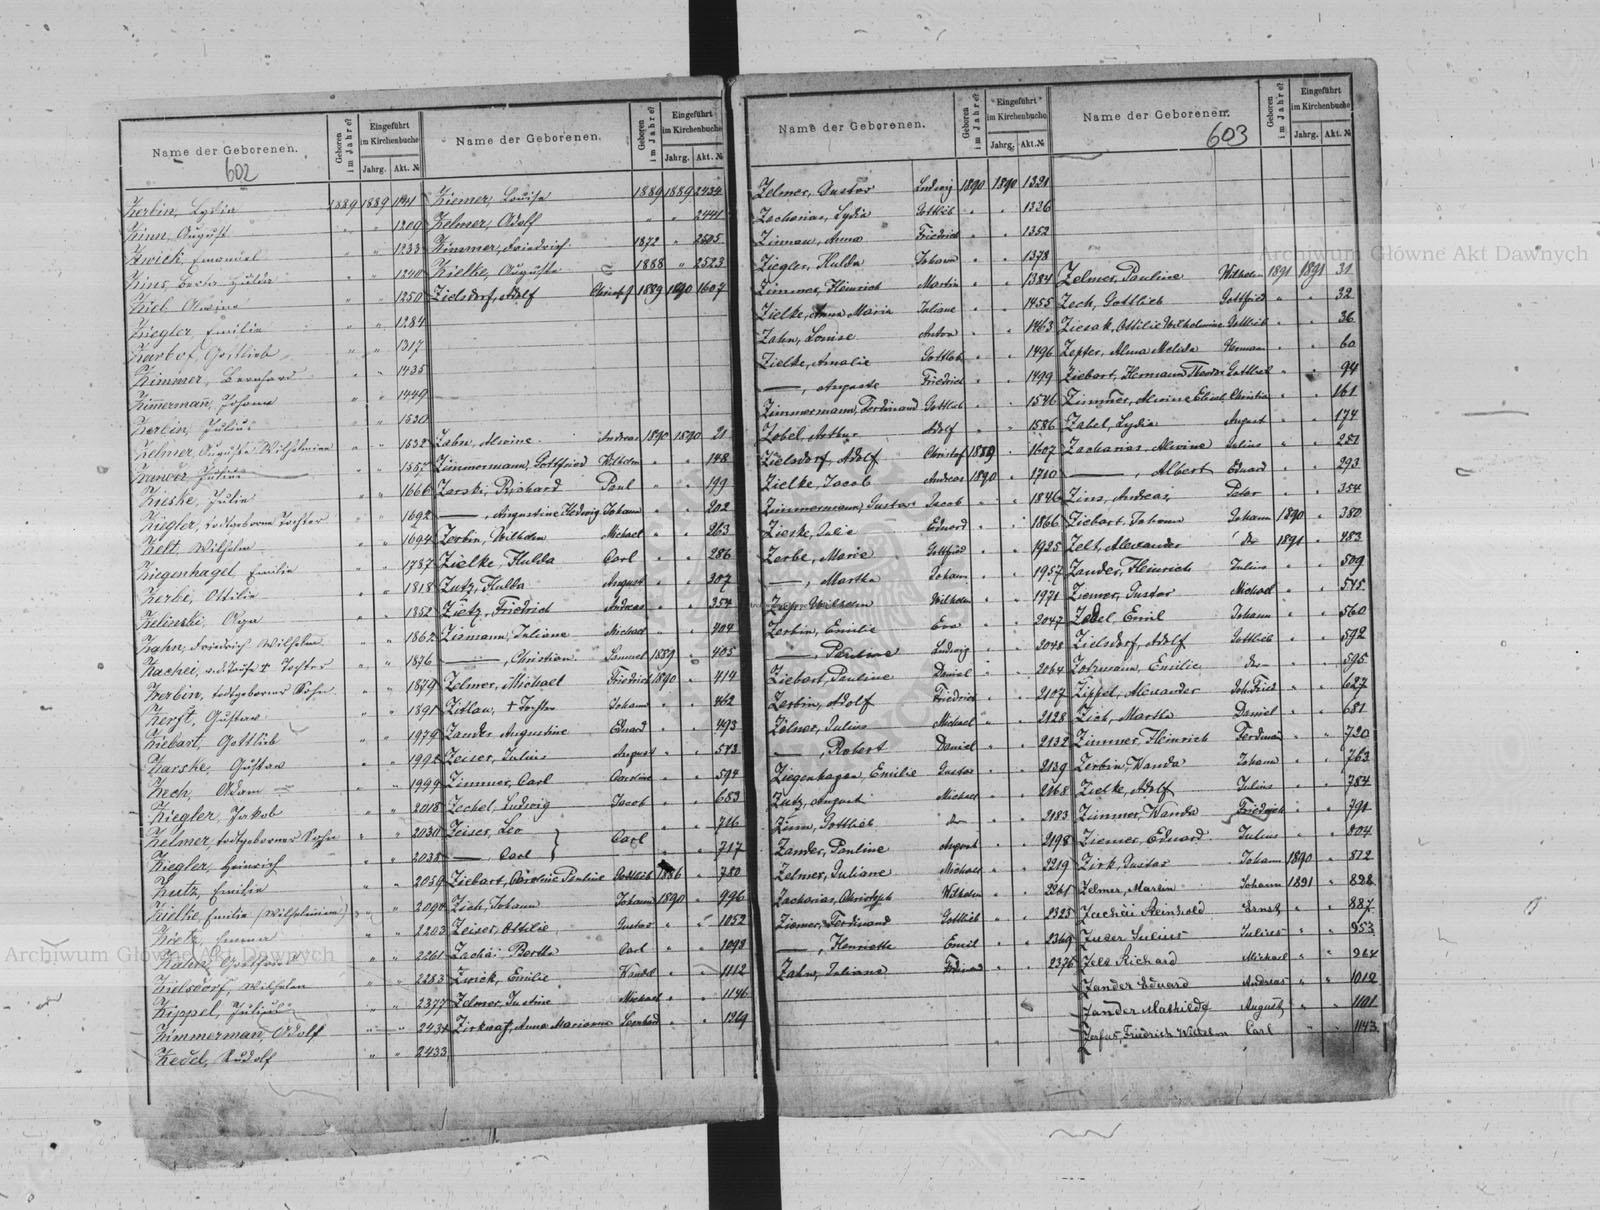 Name der Geborenen.
Geboren im Jahre
Eingeführt im Kirchenbuche
Jahrg. Akt. №
602
Zerbin, Lydia 1889 1889 1141
Zinn, August " " 1209
Zwick, Emanuel " " 1233
Zins, Bertha Hulda " " 1240
Ziel, Alwine " " 1250
Ziegler, Emilia " " 1284
Gottlieb " " 1317
Zimmer, Bernhard " " 1435
Zimmermañ, Johann " " 1449
Zerbin, Julius " " 1530
Zelmer, Auguste Wilhelmine " " 1532
Zander, Julius " " 1557
Zieske, Julia " " 1666
Ziegler, todtgeborne Tochter " " 1692
Zelt, Wilhelm " " 1694
Ziegenhagel, Emilie " " 1737
Zerbe, Ottilie " " 1818
Zielinski, Olga " " 1852
Zahn, Friedrich Wilhelm " " 1862
Zachei, Tochter " " 1876
Zerbin, todtgeborner Sohn " " 1879
Zerfst, Gustav " " 1891
Ziebart, Gottlieb " " 1979
Zarske, Gustav " " 1991
Zech, Adam " " 1999
Ziegler, Jakob " " 2018
Zelmer, todtgeborner Sohn " " 2030
Ziegler, Heinrich " " 2035
Zutz, Emilie " " 2059
Zielke, Emilie (Wilhelmine) " " 2094
Zietz, Emma " " 2203
Zahn, Gottfried " " 2261
Zielsdorf, Wilhelm " " 2283
Zippel, Julius " " 2377
Zimmerman, Adolf " " 2431
Zedel, Rudolf " " 2433
Name der Geborenen.
Geboren im Jahre
Eingeführt im Kirchenbuche
Jahrg. Akt. №
Ziemer, Louise 1889 1889 2434
Zelmer, Adolf " " 2441
Zimmer, Friedrich 1872 " 2505
Zielke, Auguste 1888 " 2523
Zielsdorf, Adolf Christof 1889 1890 1607
Zahn, Alwine Andreas 1890 1890 21
Zimmermann, Gottfried Wilhelm " " 148
Zarski, Richard Paul " " 199
—, Augustine Hedwig Johann " " 202
Zerbin, Wilhelm Michael " " 263
Zielke, Hulda Carl " " 286
Zutz, Hulda August " " 307
Zietz, Friedrich Andreas " " 354
Zismann, Juliane Michael " " 404
—, Christian Samuel 1889 " 405
Zelmer, Michael Friedrich 1890 " 414
Zittlau, † Tochter Johann " " 462
Zander, Augustine Eduard " " 493
Zeiser, Julius August " " 573
Zimmer, Carl Caroline " " 594
Zechel, Ludwig Jacob " " 653
Zeiser, Leo } Carl " " 716
—, Carl " " 717
Ziebart, Caroline Pauline Gottlieb 1886 " 780
Zich, Johann Johann 1890 " 996
Zeiser, Ottilie Gustav " " 1052
Zachäi Bertha Carl " " 1098
Zwick, Emilie " " 1112
Zelmer, Justine Michael " " 1146
Anna Marianna " " 1269
Name der Geborenen.
Geboren im Jahre
Eingeführt im Kirchenbuche
Jahrg. Akt. №
Zelmer, Gustav Ludwig 1890 1890 1321
Zacharias, Lydia Gottlieb " " 1336
Zinnau, Anna Friedrich " " 1352
Ziegler, Hulda Johann " " 1378
Zimmer, Heinrich Martin " " 1384
Zielke, Anna Maria Juliane " " 1455
Zahn, Louise Anton " " 1463
Zielke, Amalie Gottlieb " " 1496
—, Auguste Friedrich " " 1499
Zimmermann, Ferdinand Gottlieb " " 1546
Zobel, Arthur Adolf " " 1586
Zielsdorf, Adolf Christof 1889 " 1607
Zielke, Jacob Andreas 1890 " 1700
Zimmermann, Gustav Jacob " " 1846
Zieske, Julie Eduard " " 1866
Zerbe, Marie Gottfried " " 1925
—, Martha Johann " " 1957
Wilhelm Wilhelm " " 1971
Zerbin, Emilie Eva " " 2047
—, Pauline Ludwig " " 2048
Ziebart, Pauline Daniel " " 2064
Zerbin, Adolf Friedrich " " 2107
Zelmer, Julius Michael " " 2128
—, Robert Daniel " " 2132
Ziegenhagen, Emilie Gustav " " 2139
Zutz, August Michael " " 2168
Zinn, Gottlieb do " " 2183
Zander, Pauline August " " 2198
Zelmer, Juliane Michael " " 2219
Zacharias, Christoph Wilhelm " " 2261
Ziemer, Ferdinand Gottlieb " " 2325
—, Henriette Emil " " 2369
Zahn, Juliane Ferdinand " " 2376
Name der Geborenen.
603
Geboren im Jahre
Eingeführt im Kirchenbuche
Jahrg. Akt. №
Zelmer, Pauline Wilhelm 1891 1891 31
Zech, Gottlieb Gottfried " " 32
Ziesak, Ottilie Wilhelmine Gottlieb " " 36
Zepter, Alma Melida Herman " " 60
Ziebart, Hermann Theodor Gottlieb " " 94
Zimmer, Alwine Elisab. Christian " " 161
Zabel, Lydia August " " 174
Zacharias, Alwine Julius " " 281
—, Albert Eduard " " 293
Zins, Andreas, Peter " " 354
Ziebart, Johann Johann 1890 " 380
Zelt, Alexander do 1891 " 483
Zander, Heinrich Julius " " 509
Ziemer, Gustav Michael " " 545
Zobel, Emil Johann " " 560
Zielsdorf, Adolf Gottlieb " " 592
Zotzmann, Emilie do " " 595
Zippel, Alexander Joh. Fried. " " 627
Zich, Martha Daniel " " 681
Zimmer, Heinrich Ferdinand " " 720
Zerbin, Wanda Johann " " 763
Zielke, Adolf Julius " " 784
Zimmer, Wanda Friedrich " " 791
Ziemer, Eduard Julius " " 804
Zirk, Gustav Johann 1890 " 812
Zelmer, Martin Johann 1891 " 828
Zachäi Reinhold Ernst, " " 887
Julius Julius " " 953
Zelt Richard Michael " " 964
Zander Eduard Andreas " " 1012
Zander Mathilde August, " " 1101
Friedrich Wilhelm Carl " " 1143
Archiwum Główne Akt Dawnych
Archiwum Główne Akt Dawnych